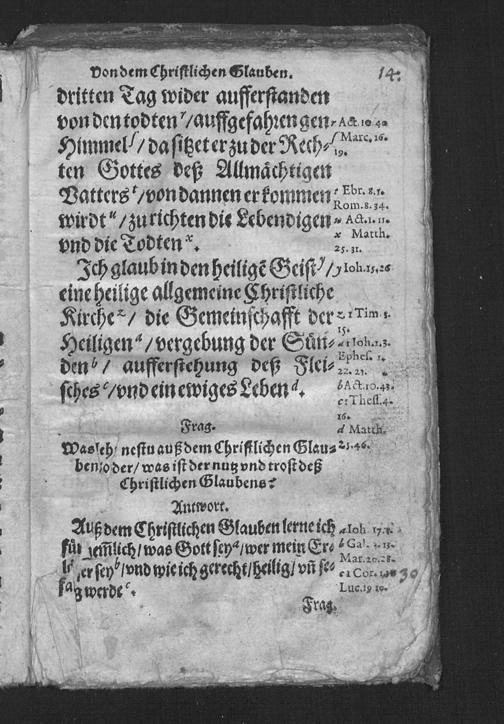 Von dem Christlichen Glauben. 14.
dritten Tag wider aufferstanden
von den todten r / auffgefahren gen
Himmel s / da sitzet er zu der Rech-
ten Gottes deß Allmächtigen
Vatters t / von dannen er kommen
wirdt u / zu richten die Lebendigen
vnd die Todten x.
Jch glaub in den heiligē Geist y /
eine heilige allgemeine Christliche
Kirche z / die Gemeinschafft der
Heiligen a / vergebung der Sün-
den b / aufferstehung deß Flei-
sches c / vnd ein ewiges Leben d.
r Act. 10. 40
s Marc. 16.
19.
t Ebr. 8. 1.
Rom. 8. 34.
u Act. 1. 11.
x Matth.
25. 31.
y Ioh. 15. 26
z 1 Tim 3.
15.
a 1 Ioh. 1. 3.
Ephes. 1.
22. 23.
b Act. 10. 43.
c 1 Thess. 4.
16.
d Matth.
25. 46.
Frag.
Was lehrnestu auß dem Christlichen Glau-
ben / oder / was ist der nutz vnd trost deß
Christlichen Glaubens?
Antwort.
Auß dem Christlichen Glauben lerne ich
für nemlich / was Gott sey a / wer mein Er-
löser sey b / vnd wie ich gerecht / heilig / vñ se-
lig werde c.
a Ioh. 17. 3.
b Gal. 4.
Mar. 20. 28.
c 1 Cor. 1. 30
Luc. 19 10.
Frag.